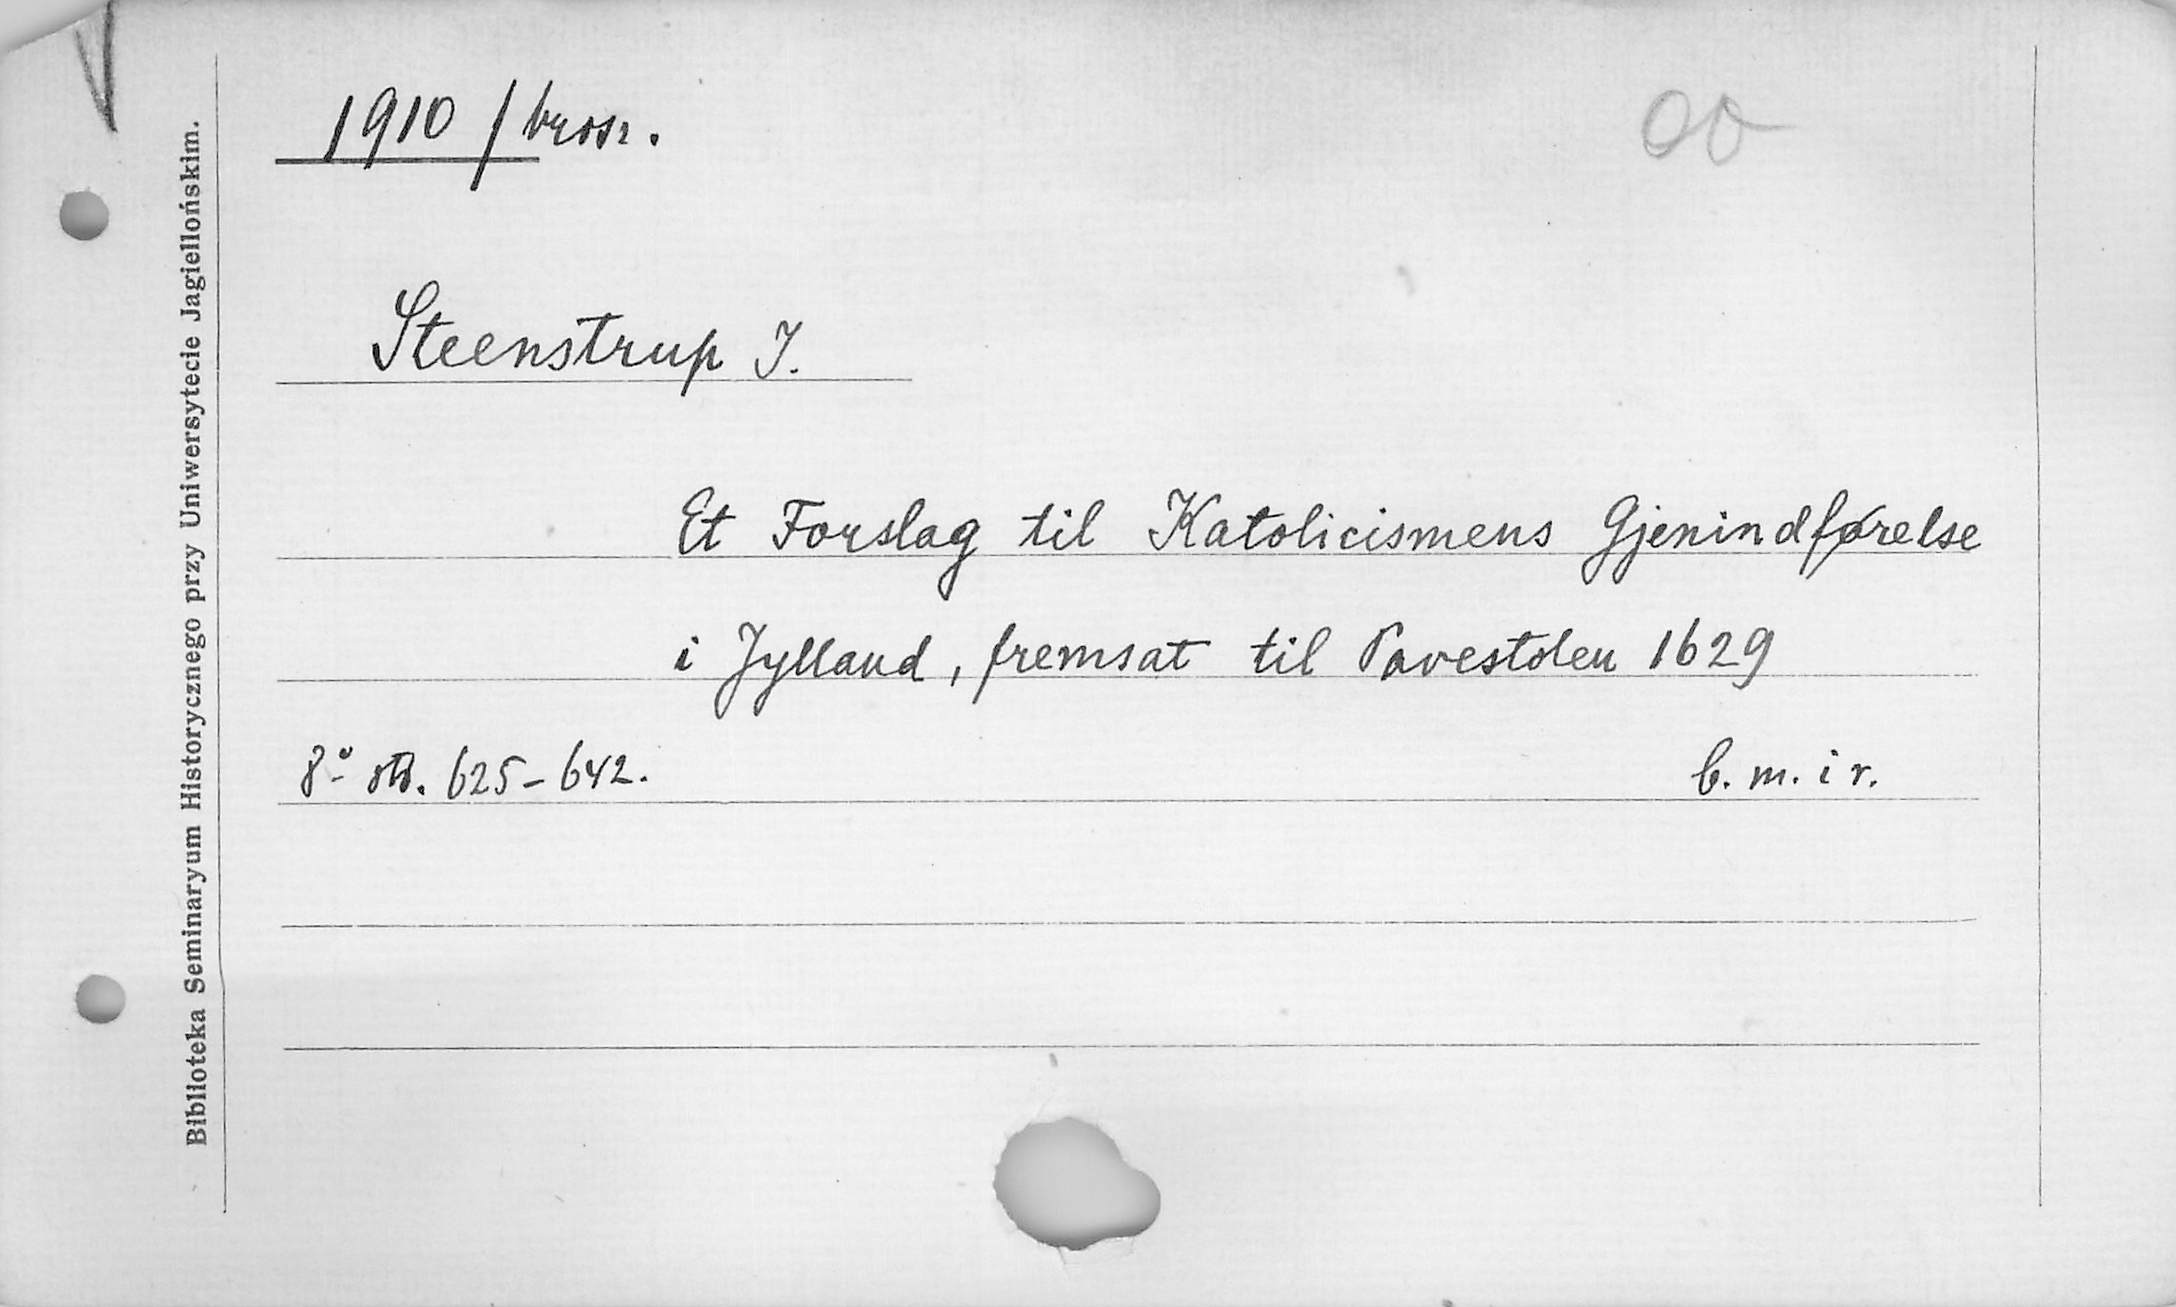 1910 / brosz.
00
Steenstrup J.
Et Forslag til Katolicismens Gjenindførelse
i Jylland, fremsat til Pavestolen 1629
8º str. 625-642.
b. m. i r.
Biblioteka Seminaryum Historycznego przy Uniwersytecie Jagiellońskim.